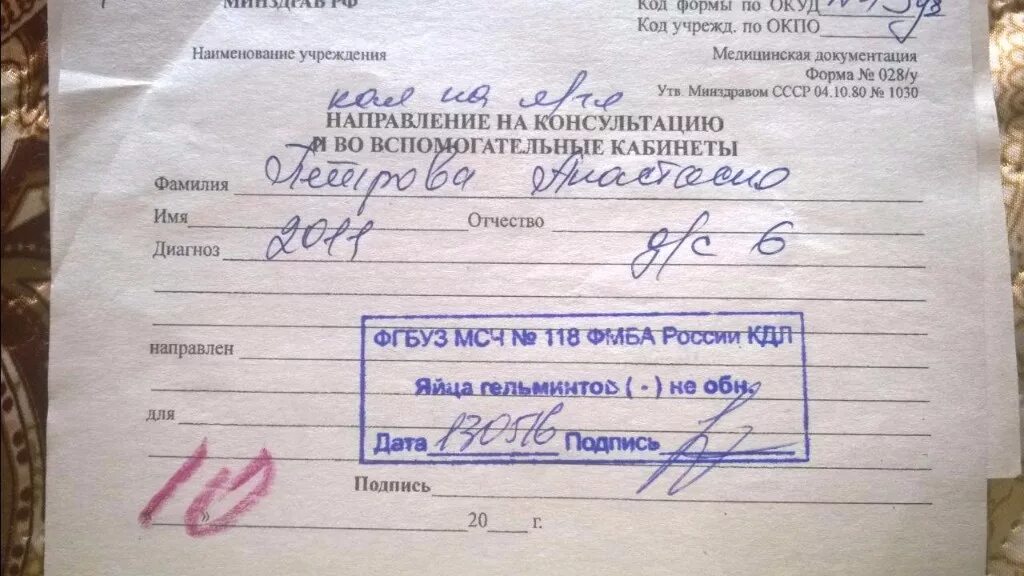 МИНЗДРАВ РФ
Код формы по ОКУД
Код учрежд. по ОКПО
Наименование учреждения
Медицинская документация
Форма № 028/у
Утв. Минздравом СССР 04.10.80 № 1030
кал на я/гл
НАПРАВЛЕНИЕ НА КОНСУЛЬТАЦИЮ
И ВО ВСПОМОГАТЕЛЬНЫЕ КАБИНЕТЫ
Фамилия Петрова Анастасия
Имя Отчество
Диагноз 2011 д/с 6
ФГБУЗ МСЧ № 118 ФМБА России КДЛ
направлен
Яйца гельминтов ( - ) не обн.
для
Дата 130516 Подпись
Подпись
10
« » 20 г.